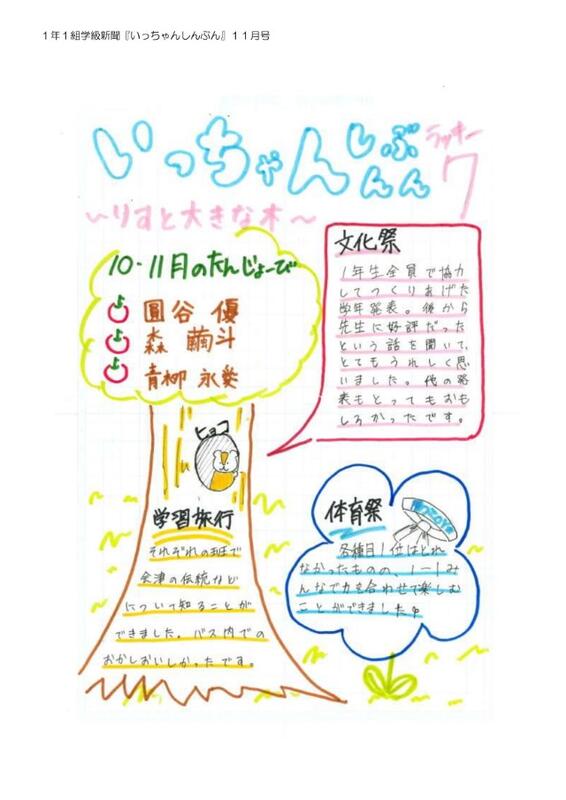 1年1組学級新聞『いっちゃんしんぶん』11月号
いっちゃんしんぶん
ラッキー7
〜りすと大きな木〜
10・11月のたんじょーび
圓谷 優
森 繭斗
青柳 永
文化祭
1年生全員で協力
してつくりあげた
学年発表。後から
先生に好評だった
という話を聞いて、
とてもうれしく思
いました。他の発
表もとってもおも
しろかったです。
ヒョコ
学習旅行
それぞれの班で
会津の伝統など
について知ることが
できました。バス内での
おかしおいしかったです。
体育祭
各種目1位はとれ
なかったものの、1-1み
んなで力を合わせて楽しむ
ことができました